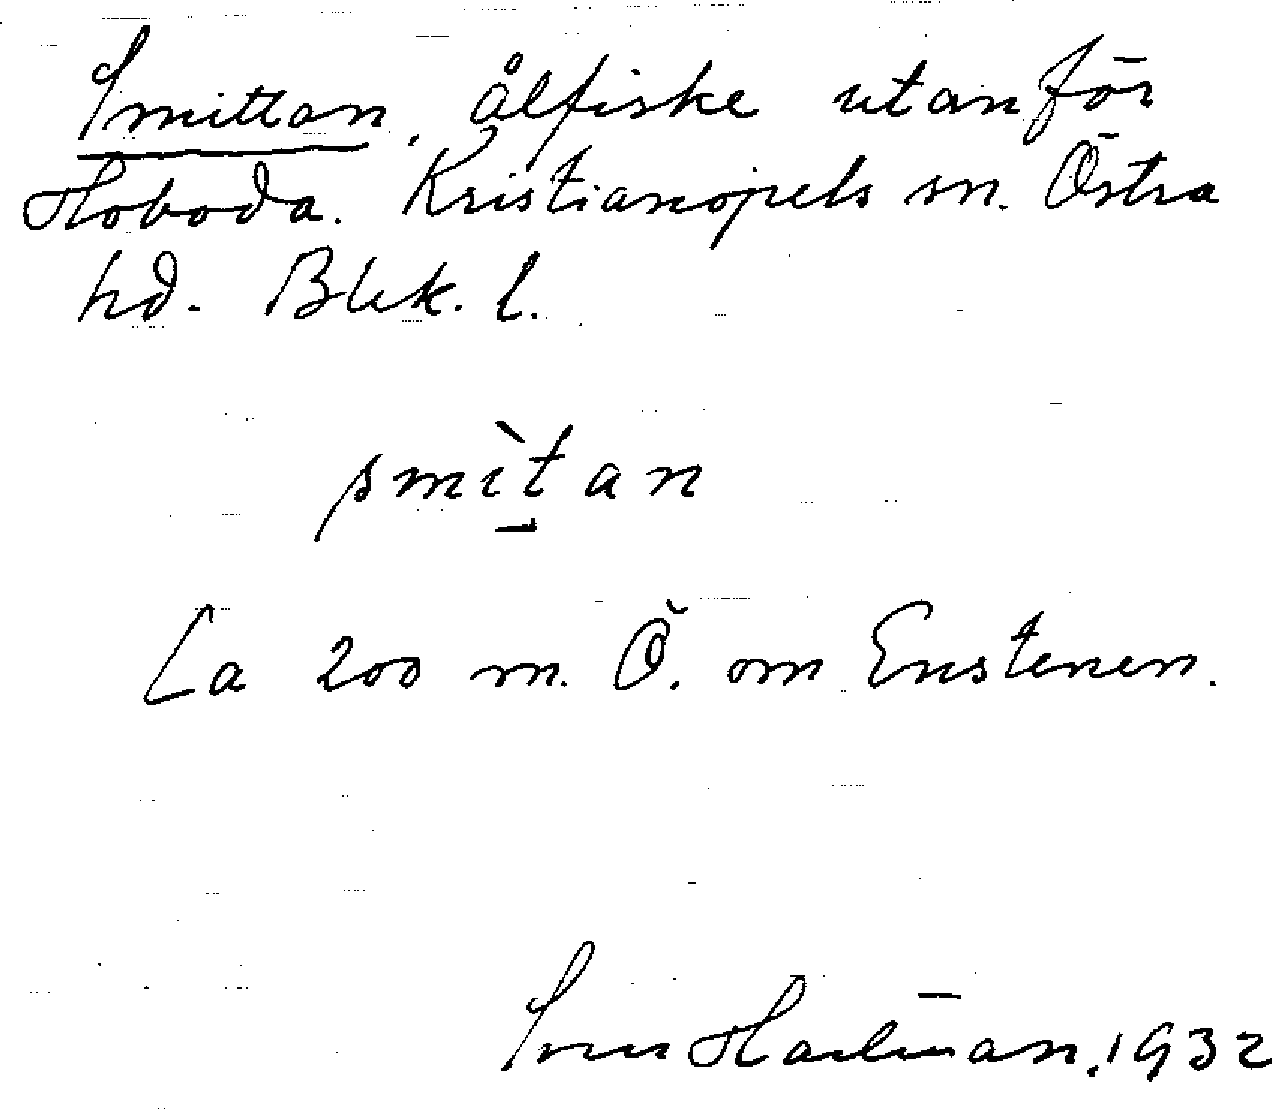 Smittan, ålfiske utanför
Hoboda. Kristianopels sn. Östra
hd. Blek. l.
smìtan
Ca 200 m. Ö. om Enstenen.
Sven Hartman, 1932